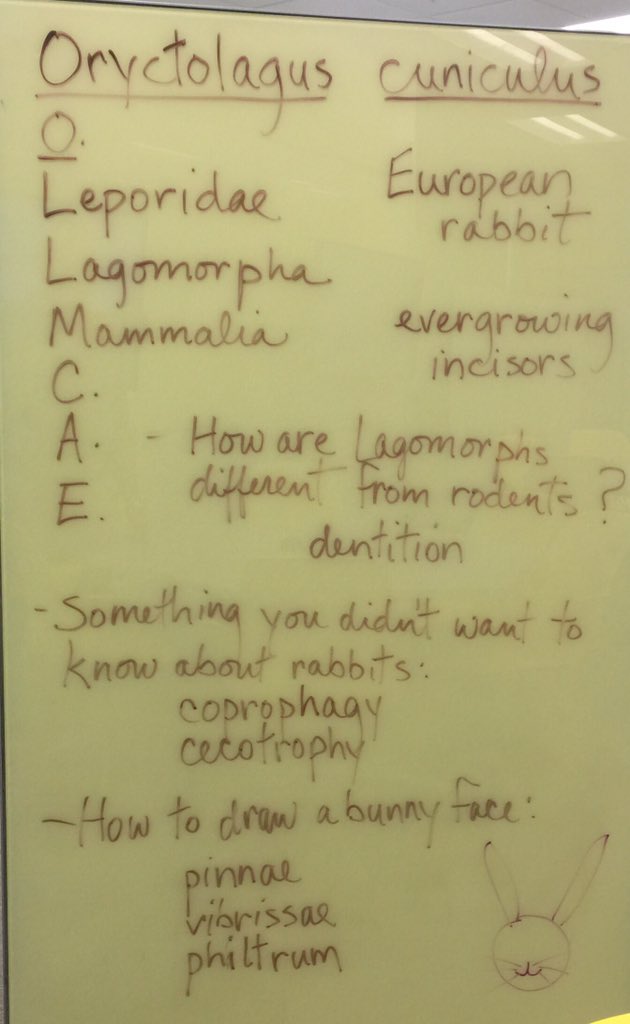 Oryctolagus cuniculus
O.
Leporidae
European
rabbit
Lagomorpha
Mammalia
evergrowing
incisors
C.
A. - How are Lagomorphs
different from rodents?
E.
dentition
- Something you didn't want to
know about rabbits:
coprophagy
cecotrophy
- How to draw a bunny face:
pinnae
vibrissae
philtrum